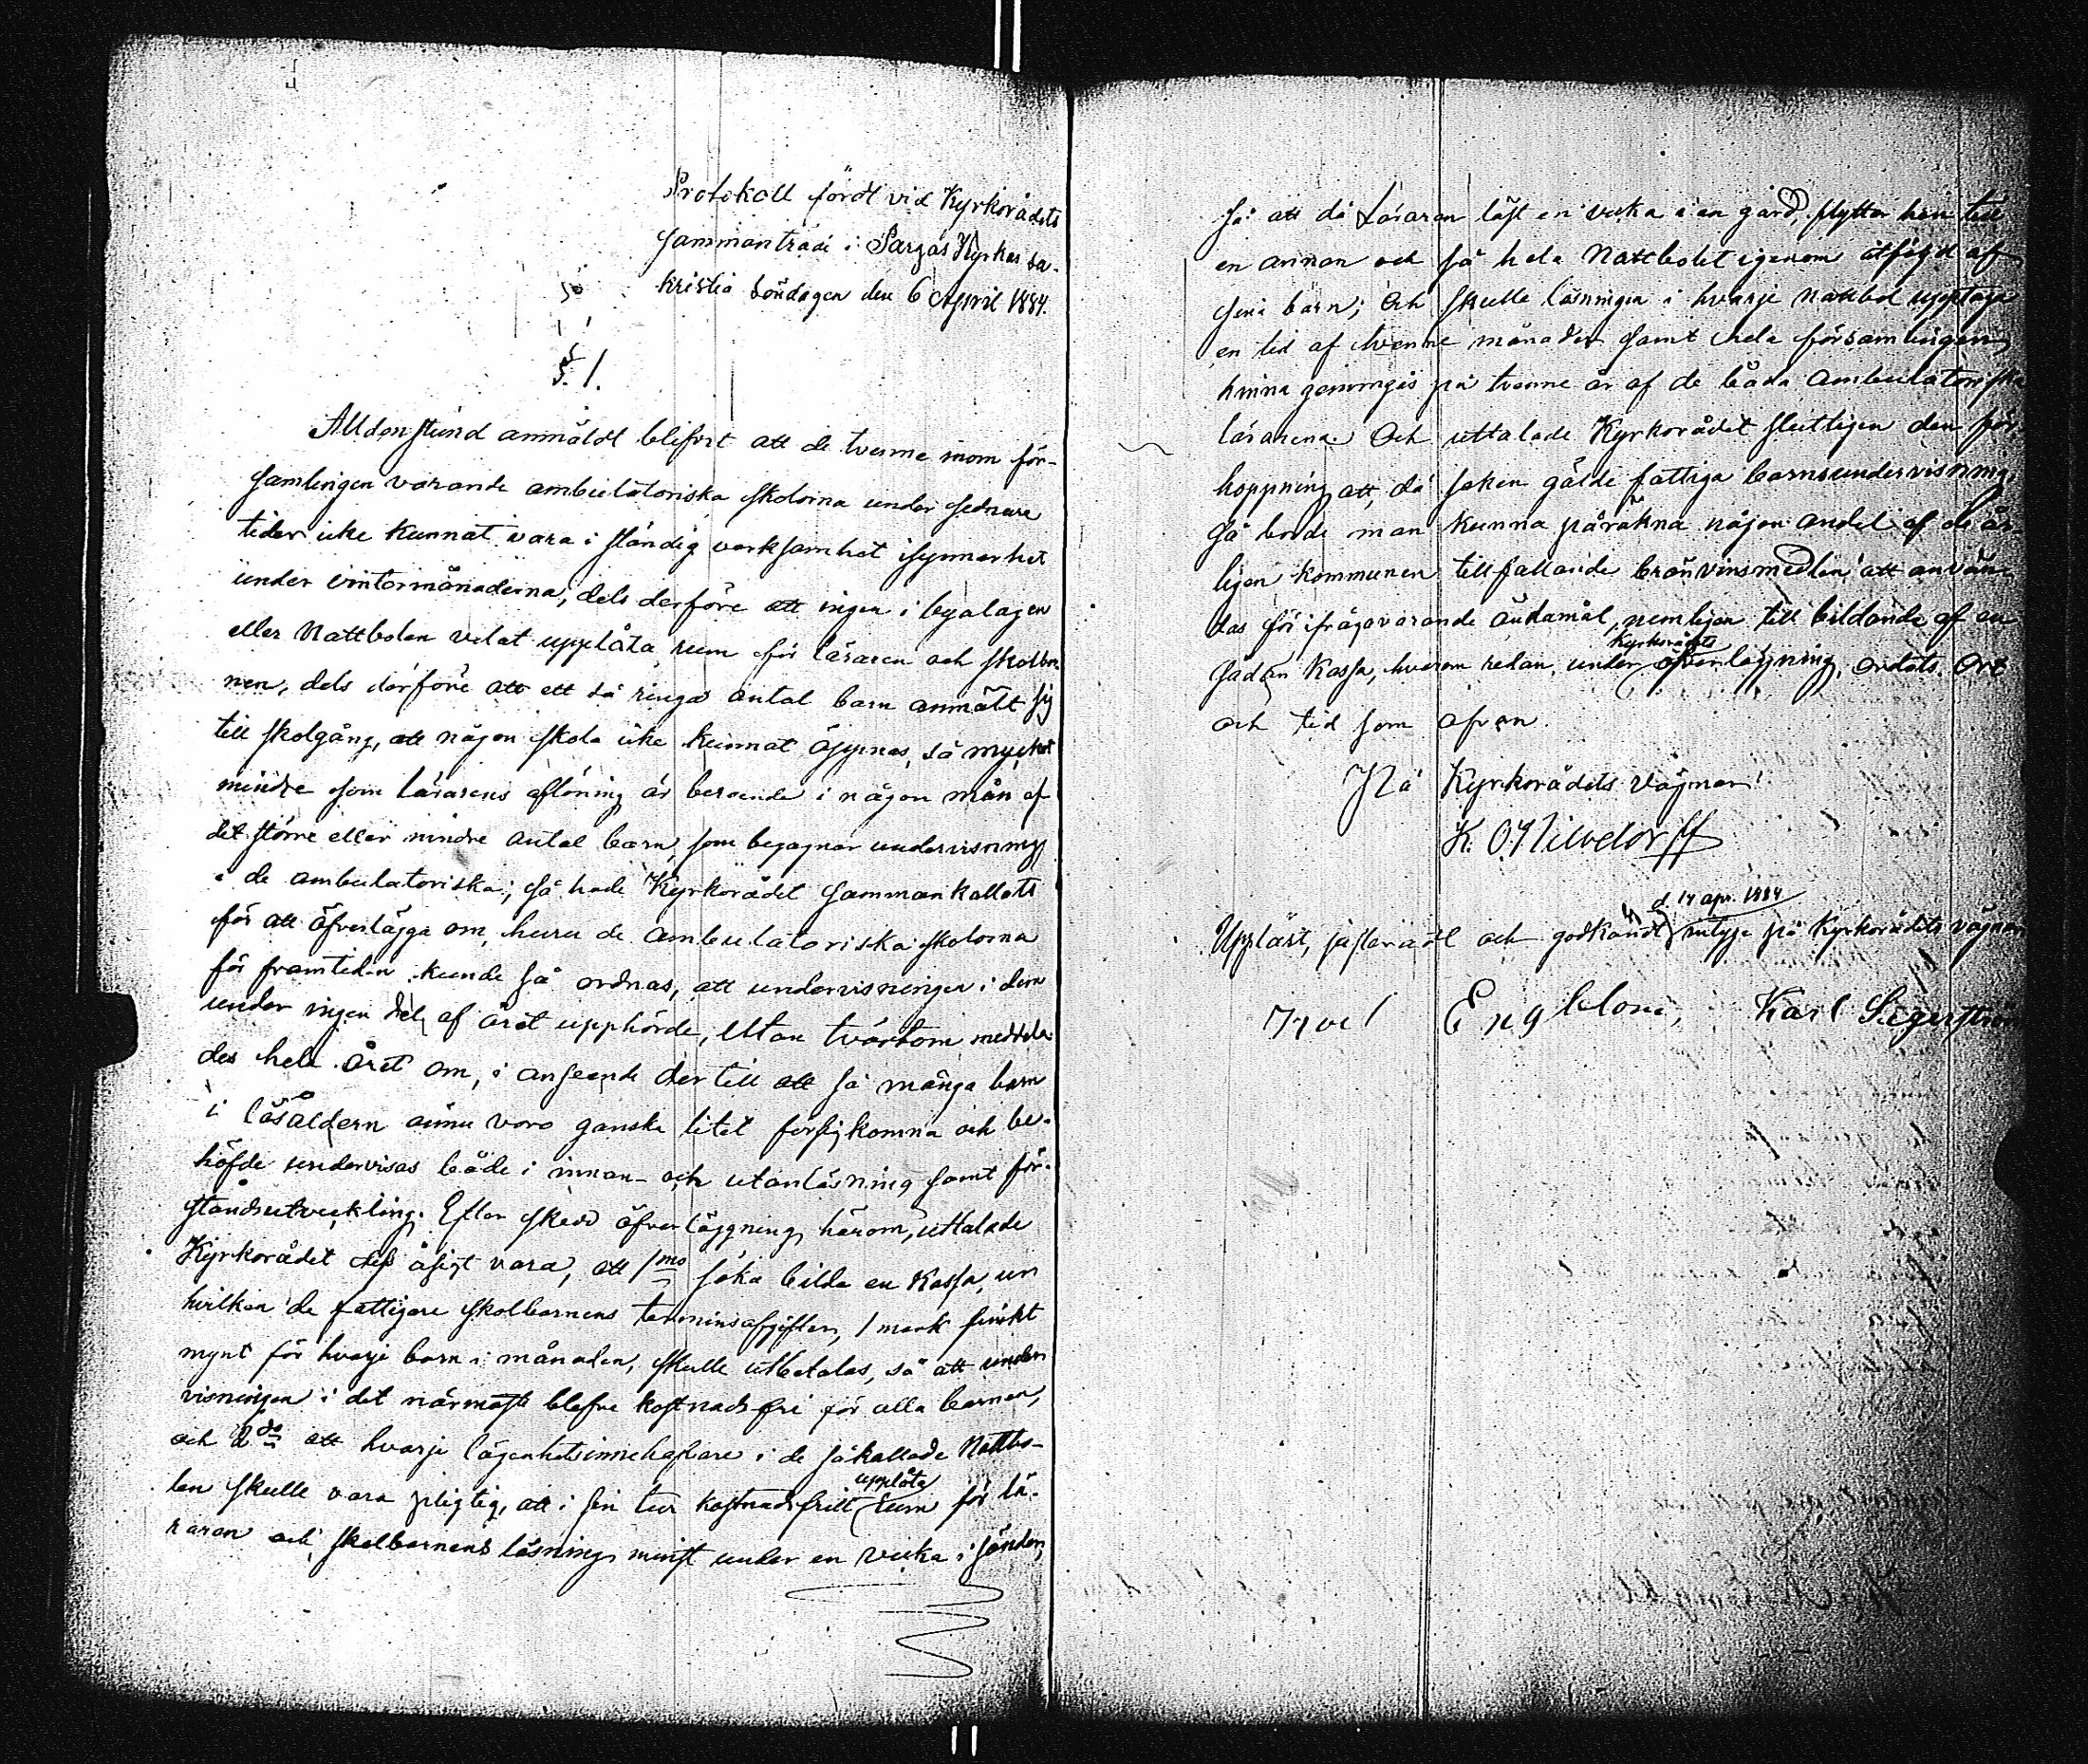 Protokoll fördt vid Kyrkorådets
sammanträde i Pargas Kyrkas sa-
kristia söndagen den 6 April 1884.
§. 1.
Alldenstund anmäldt blifvit att de tvenne inom för-
samlingen varande ambulatoriska skolorna under sednare
tider icke kunnat vara i ständig verksamhet isynnerhet
under vintermånaderna, dels derföre att ingen i byalagen
eller Nattbolen velat upplåta rum för läraren och skolbar
nen, dels derföre att ett så ringa antal barn anmält sig
till skolgång, att någon skola icke kunnat öppnas, så mycket
mindre som lärarens aflöning är beroende i någon mån af
det större eller mindre antal barn, som begagnar undervisning
i de ambulatoriska; så hade Kyrkorådet sammankallats
för att öfverlägga om, huru de ambulatoriska skolorna
för framtiden kunde så ordnas, att undervisningen i dem
under ingen del af året upphörde, utan tvärtom meddela-
des hela året om, i anseende dertill att så många barn
i läsåldern ännu voro ganska litet försigkomna och be-
höfde undervisas både i innan- och utanläsning samt för-
ståndsutveckling. Efter skedd öfverläggning härom, uttalade
Kyrkorådet dess åsigt vara, att 1mo söka bilda en Kassa, ur
hvilken de fattigare skolbarnens terminsafgifter, 1 mark finskt
mynt för hvarje barn i månaden, skulle utbetalas, så att under
visningen i det närmaste blefve kostnadsfri för alla barnen,
och 2do att hvarje lägenhetsinnehafvare i de såkallade Nattbo-
len skulle vara pligtig, att i sin tur kostnadsfritt upplåta rum för lä-
raren och skolbarnens läsning minst under en vecka i sönder,
så att då Läraren läst en vecka i en gård, flyttar han till
en annan och så hela Nattbolet igenom åtföljd af
sina barn; Och skulle läsningen i hvarje nattbol upptaga
en tid af tvenne månader samt hela församlingen
hinna genomgås på tvenne år af de båda ambulatoriska
lärarena. Och uttalade Kyrkorådet slutligen den för
hoppning att, då saken gälde fattiga barns undervisning,
så borde man kunna påräkna någon andel af de år-
ligen kommunen tillfallande bränvinsmedlen, att använ-
das för ifrågavarande ändamål, nemligen till bildande af en
sådan Kassa, hvarom redan under Kyrkorådets öfverläggning, ordats. Ort
och tid som ofvan.
På Kyrkorådets vägnar:
K. O.
Uppläst, justeradt och godkändt d. 14 apr. 1884 intyga på Kyrkorådets vägnar
Engblom, Karl Segerström